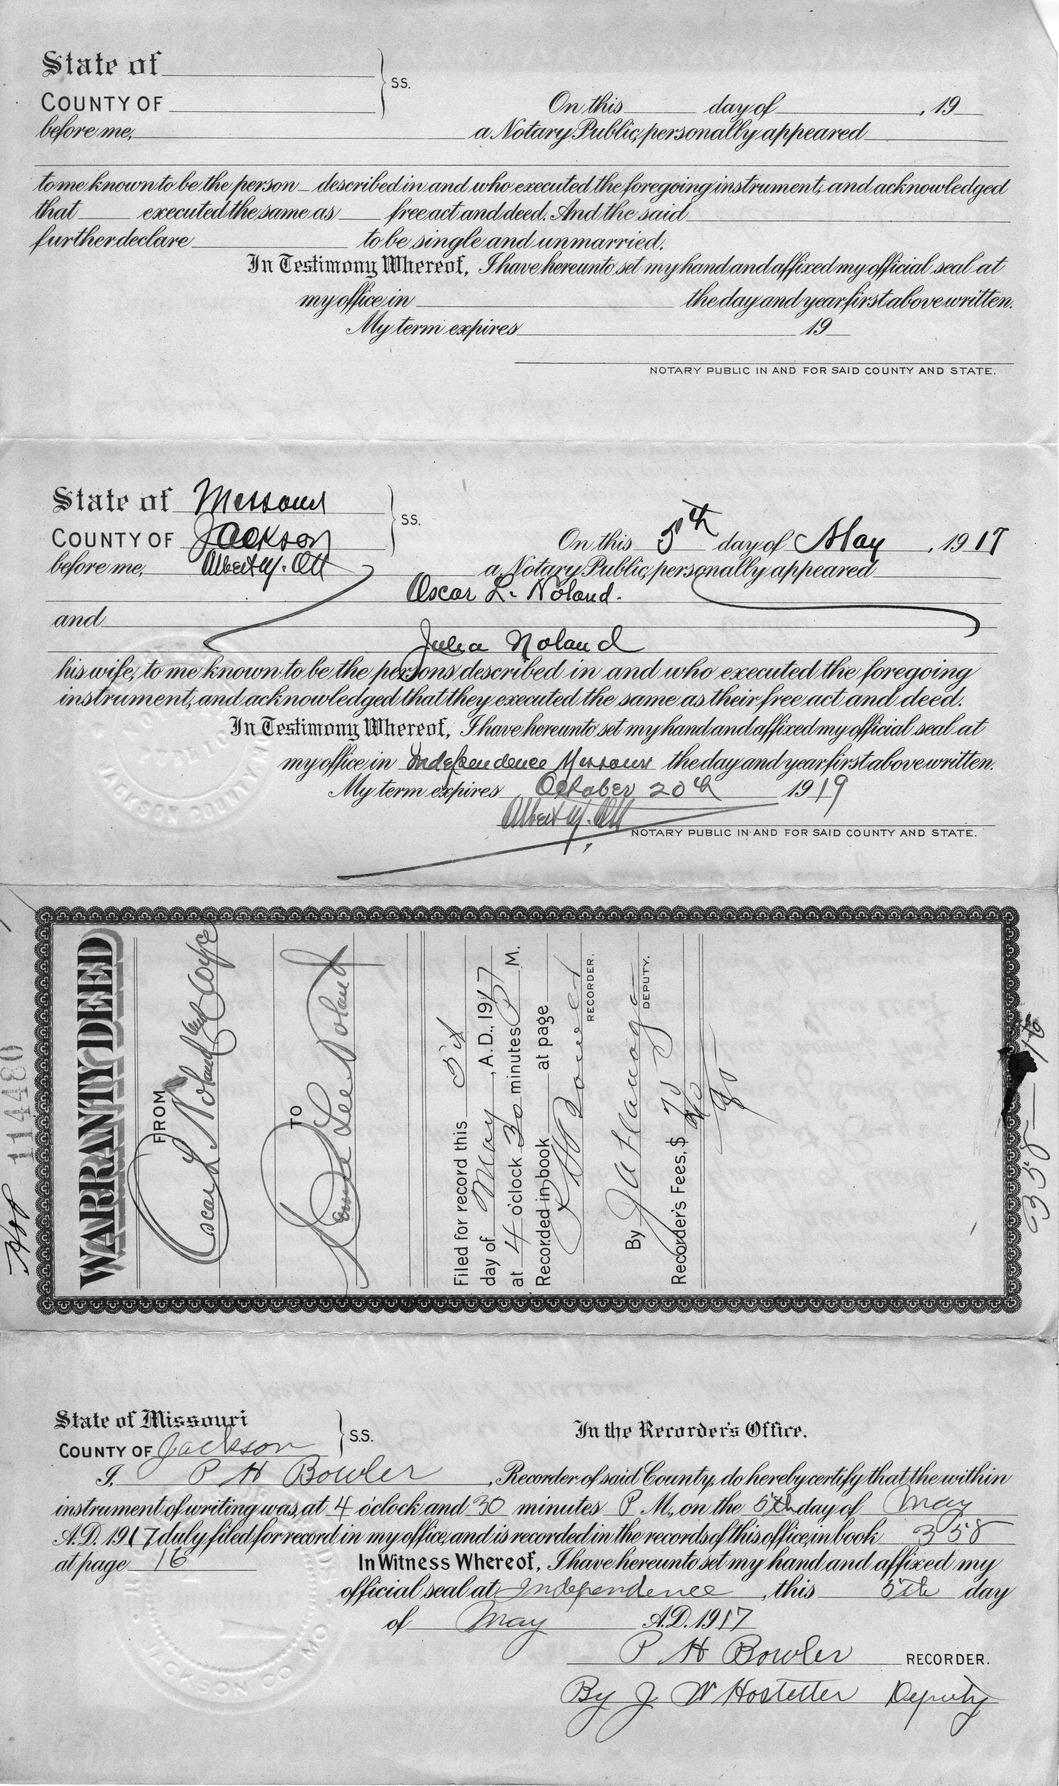 State of
COUNTY OF
SS.
On this day of , 19
before me, a Notary Public, personally appeared
to me known to be the person described in and who executed the foregoing instrument, and acknowledged
that executed the same as free act and deed. And the said
further declare to be single and unmarried.
In Testimony Whereof, I have hereunto set my hand and affixed my official seal at
my office in the day and year first above written.
My term expires 19
NOTARY PUBLIC IN AND FOR SAID COUNTY AND STATE.
State of Missouri
COUNTY OF Jackson
SS.
On this 5th day of May , 1917
before me, Albert M. Ott a Notary Public, personally appeared
Oscar L. Noland.
and
Julia Noland
his wife, to me known to be the persons described in and who executed the foregoing
instrument, and acknowledged that they executed the same as their free act and deed.
In Testimony Whereof, I have hereunto set my hand and affixed my official seal at
my office in Independence Missouri the day and year first above written.
My term expires October 20th 1919
Albert M. Ott
NOTARY PUBLIC IN AND FOR SAID COUNTY AND STATE.
JACKSON COUNTY, MO
114480
WARRANTY DEED
FROM
Oscar L Noland
TO
Lee Noland
Filed for record this 5th
day of May , A. D., 1917
at 4 o'clock 30 minutes P M.
Recorded in book at page
RECORDER.
By DEPUTY.
Recorder's Fees, $
358-16
State of Missouri
COUNTY OF Jackson
S.S.
In the Recorder's Office.
I, P H Bowler , Recorder of said County, do hereby certify that the within
instrument of writing was, at 4 o'clock and 30 minutes P. M., on the 5th day of May
A.D. 1917 duly filed for record in my office, and is recorded in the records of this office, in book 358
at page 16 In Witness Whereof, I have hereunto set my hand and affixed my
official seal at Independence , this 5th day
of May A.D. 1917
P H Bowler RECORDER.
By J W Hostetter Deputy
JACKSON CO MO